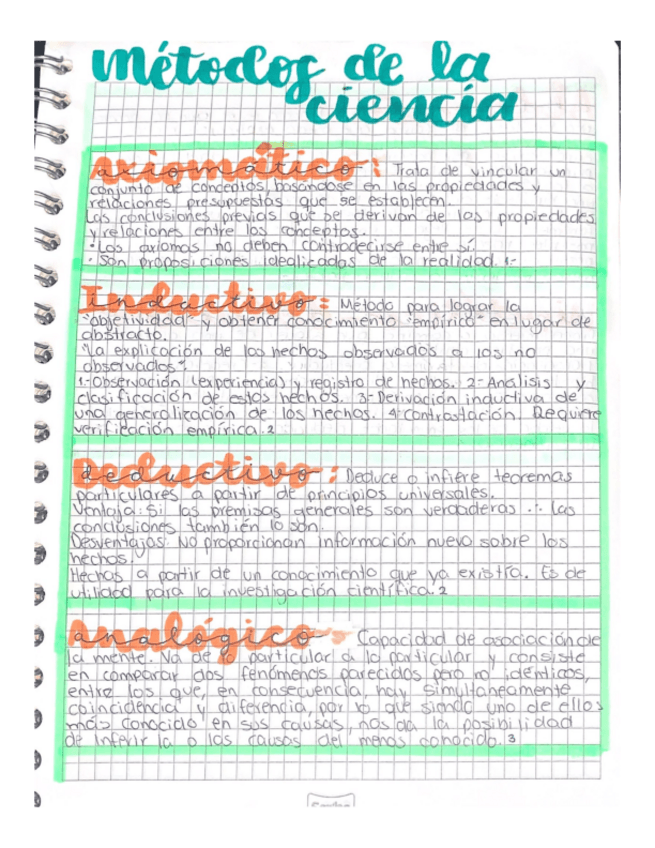 métodos de la
ciencia
axiomático: Trata de vincular un
conjunto de conceptos, basándose en las propiedades y
relaciones presupuestas que se establecen.
Las conclusiones previas que se derivan de las propiedades
y relaciones entre los conceptos.
·Los axiomas no deben contradecirse entre sí.
·Son proposiciones idealizadas de la realidad. 1-
Inductivo: Método para lograr la
"objetividad" y obtener conocimiento "empírico" en lugar de
abstracto.
"La explicación de los hechos observados a los no
observados".
1.-Observación (experiencia) y registro de hechos. 2-Analisis y
clasificación de estos hechos. 3-Derivación inductiva de
una generalización de los hechos. 4-Contrastación. Requiere
verificación empírica.2
deductivo: Deduce o infiere teoremas
particulares a partir de principios universales.
Ventaja: Si las premisas generales son verdaderas ∴ las
conclusiones también lo son.
Desventajas: No proporcionan información nueva sobre los
hechos.
Hechos a partir de un conocimiento que ya existía. Es de
utilidad para la investigación científica.2
analógico: Capacidad de asociación de
la mente. Va de lo particular a lo particular y consiste
en comparar dos fenómenos parecidos pero no idénticos,
entre los que, en consecuencia, hay simultaneamente
coincidencia y diferencia, por lo que siendo uno de ellos
más conocido en sus causas, nos da la posibilidad
de inferir la o las causas del menos conocido.3